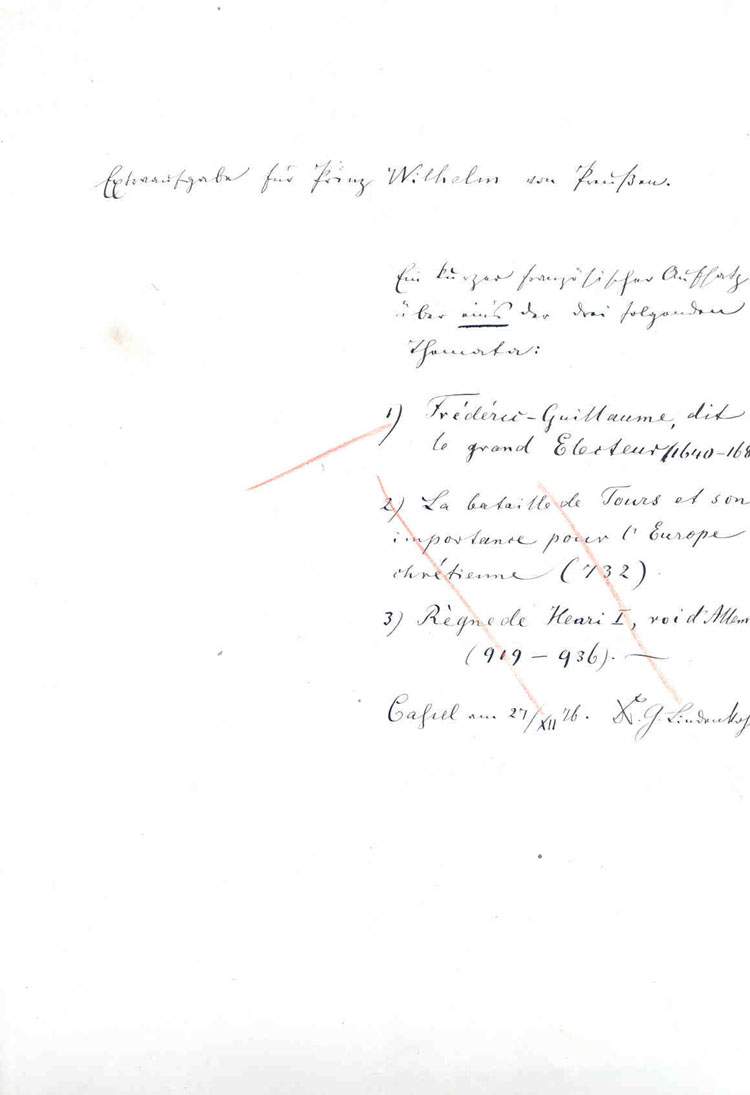 Extraaufgabe für Prinz Wilhelm von Preußen.
Ein kurzer französischer Aufsatz
über eins der drei folgenden
Themata:
1) Frédéric-Guillaume, dit
le grand Electeur (1640-168
2) La bataille de Tours et son
importance pour l'Europe
chrétienne (732).
3) Règne de Henri I, roi d'Allem
(919 – 936). —
Cassel am 27/XII 76. Dr. G. Lindenkoh